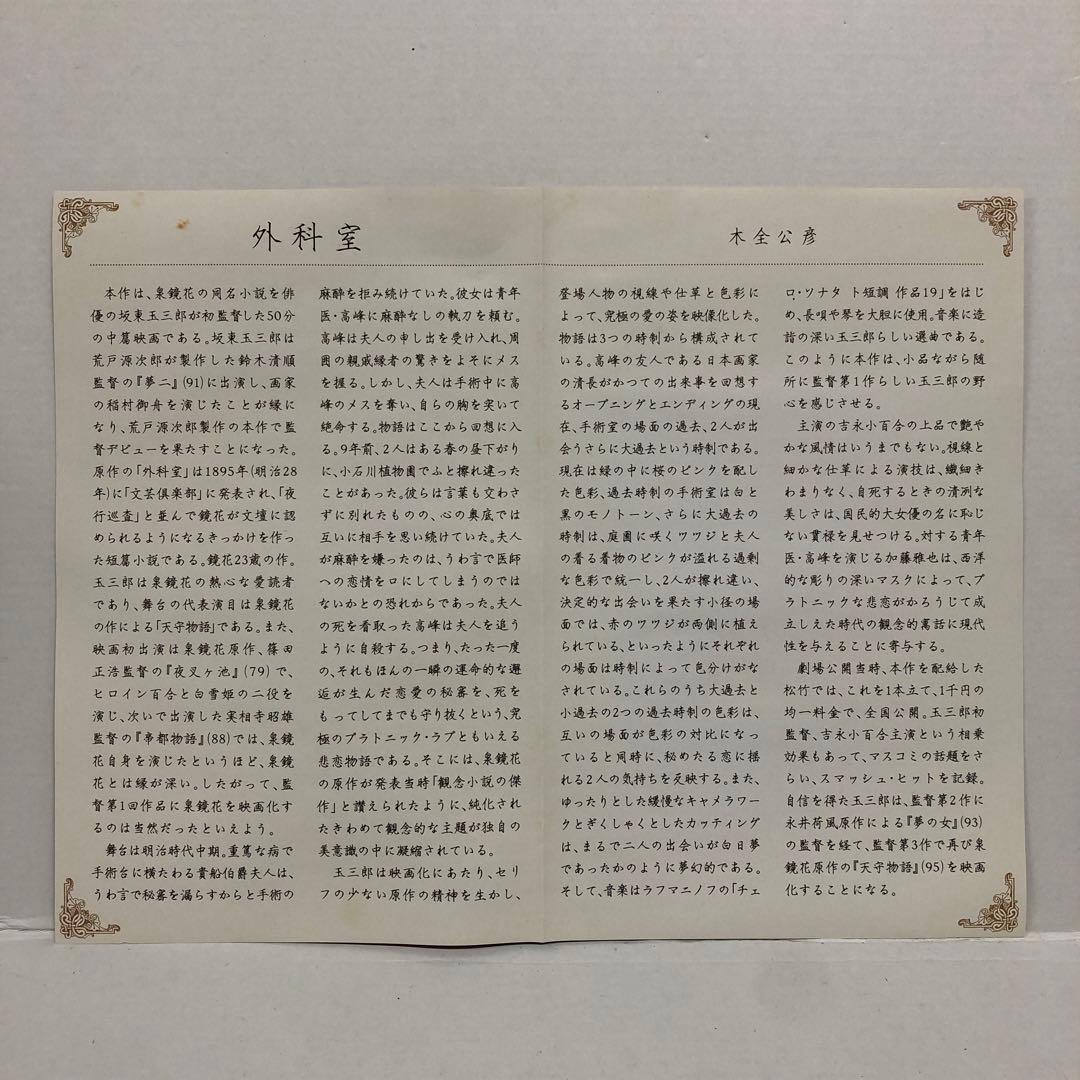 外科室
木全公彦
本作は、泉鏡花の同名小説を俳
優の坂東玉三郎が初監督した50分
の中篇映画である。坂東玉三郎は
荒戸源次郎が製作した鈴木清順
監督の『夢二』(91)に出演し、画家
の稲村御舟を演じたことが縁に
なり、荒戸源次郎製作の本作で監
督デビューを果たすことになった。
原作の「外科室」は1895年(明治28
年)に「文芸倶楽部」に発表され、「夜
行巡査」と並んで鏡花が文壇に認
められるようになるきっかけを作っ
た短篇小説である。鏡花23歳の作。
玉三郎は泉鏡花の熱心な愛読者
であり、舞台の代表演目は泉鏡花
の作による「天守物語」である。また、
映画初出演は泉鏡花原作、篠田
正浩監督の『夜叉ヶ池』(79)で、
ヒロイン百合と白雪姫の二役を
演じ、次いで出演した実相寺昭雄
監督の『帝都物語』(88)では、泉鏡
花自身を演じたというほど、泉鏡
花とは縁が深い。したがって、監
督第1回作品に泉鏡花を映画化す
るのは当然だったといえよう。
舞台は明治時代中期。重篤な病で
手術台に横たわる貴船伯爵夫人は、
うわ言で秘密を漏らすからと手術の
麻酔を拒み続けていた。彼女は青年
医・高峰に麻酔なしの執刀を頼む。
高峰は夫人の申し出を受け入れ、周
囲の親戚縁者の驚きをよそにメス
を握る。しかし、夫人は手術中に高
峰のメスを奪い、自らの胸を突いて
絶命する。物語はここから回想に入
る。9年前、2人はある春の昼下がり
に、小石川植物園でふと擦れ違った
ことがあった。彼らは言葉も交わさ
ずに別れたものの、心の奥底では
互いに相手を思い続けていた。夫人
が麻酔を嫌ったのは、うわ言で医師
への恋情を口にしてしまうのでは
ないかとの恐れからであった。夫人
の死を看取った高峰は夫人を追う
ように自殺する。つまり、たった一度
の、それもほんの一瞬の運命的な邂
逅が生んだ恋愛の秘密を、死を
もってしてまでも守り抜くという、究
極のプラトニック・ラブともいえる
悲恋物語である。そこには、泉鏡花
の原作が発表当時「観念小説の傑
作」と讃えられたように、純化され
たきわめて観念的な主題が独自の
美意識の中に凝縮されている。
玉三郎は映画化にあたり、セリ
フの少ない原作の精神を生かし、
登場人物の視線や仕草と色彩に
よって、究極の愛の姿を映像化した。
物語は3つの時制から構成されて
いる。高峰の友人である日本画家
の清長がかつての出来事を回想す
るオープニングとエンディングの現
在、手術室の場面の過去、2人が出
会うさらに大過去という時制である。
現在は緑の中に桜のピンクを配し
た色彩、過去時制の手術室は白と
黒のモノトーン、さらに大過去の
時制は、庭園に咲くツツジと夫人
の着る着物のピンクが溢れる過剰
な色彩で統一し、2人が擦れ違い、
決定的な出会いを果たす小径の場
面では、赤のツツジが両側に植え
られている、といったようにそれぞれ
の場面は時制によって色分けがな
されている。これらのうち大過去と
小過去の2つの過去時制の色彩は、
互いの場面が色彩の対比になっ
ていると同時に、秘めたる恋に揺
れる2人の気持ちを反映する。また、
ゆったりとした緩慢なキャメラワー
クとぎくしゃくとしたカッティング
は、まるで二人の出会いが白日夢
であったかのように夢幻的である。
そして、音楽はラフマニノフの「チェ
ロ・ソナタ ト短調 作品19」をはじ
め、長唄や琴を大胆に使用。音楽に造
詣の深い玉三郎らしい選曲である。
このように本作は、小品ながら随
所に監督第1作らしい玉三郎の野
心を感じさせる。
主演の吉永小百合の上品で艶や
かな風情はいうまでもない。視線と
細かな仕草による演技は、繊細き
わまりなく、自死するときの清冽な
美しさは、国民的大女優の名に恥じ
ない貫様を見せつける。対する青年
医・高峰を演じる加藤雅也は、西洋
的な彫りの深いマスクによって、プ
ラトニックな悲恋がかろうじて成
立しえた時代の観念的寓話に現代
性を与えることに寄与する。
劇場公開当時、本作を配給した
松竹では、これを1本立て、1千円の
均一料金で、全国公開。玉三郎初
監督、吉永小百合主演という相乗
効果もあって、マスコミの話題をさ
らい、スマッシュ・ヒットを記録。
自信を得た玉三郎は、監督第2作に
永井荷風原作による『夢の女』(93)
の監督を経て、監督第3作で再び泉
鏡花原作の『天守物語』(95)を映画
化することになる。